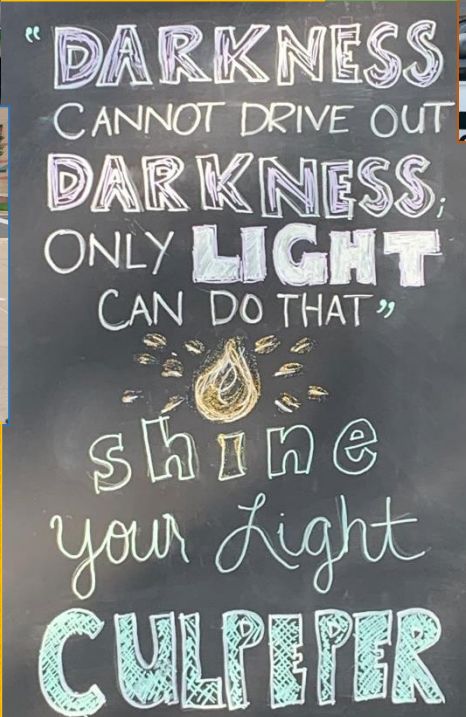 “DARKNESS
CANNOT DRIVE OUT
DARKNESS;
ONLY LIGHT
CAN DO THAT”
shine
your Light
CULPEPER